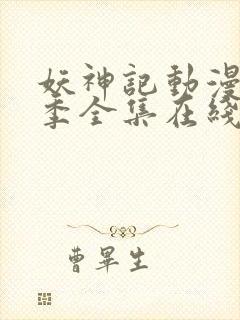 妖神記動漫
季全集在綫
曹畢生